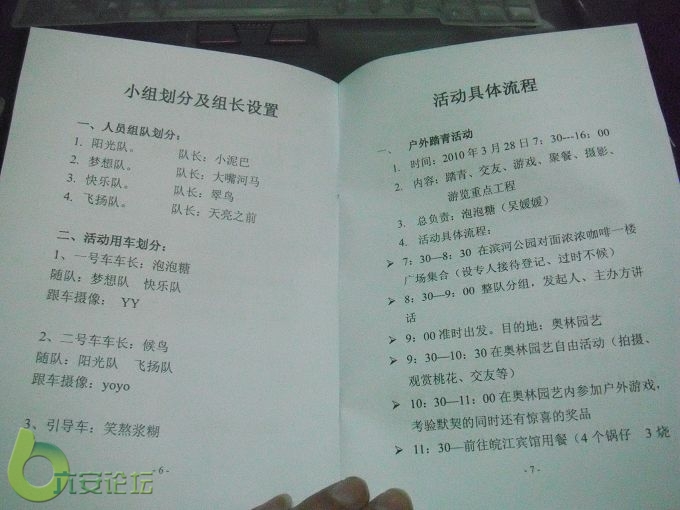 小组划分及组长设置
一、人员组队划分：
1. 阳光队。 队长：小泥巴
2. 梦想队。 队长：大嘴河马
3. 快乐队。 队长：翠鸟
4. 飞扬队。 队长：天亮之前
二、活动用车划分：
1、一号车车长：泡泡糖
随队：梦想队 快乐队
跟车摄像：YY
2、二号车车长：候鸟
随队：阳光队 飞扬队
跟车摄像：yoyo
3、引导车：笑熬浆糊
- 6 -
六安论坛
活动具体流程
一、 户外踏青活动
1. 时间：2010 年 3 月 28 日 7：30---16：00
2. 内容：踏青、交友、游戏、聚餐、摄影、
游览重点工程
3. 总负责：泡泡糖（吴媛媛）
4. 活动具体流程：
➢ 7：30—8：30 在滨河公园对面浓浓咖啡一楼
广场集合（设专人接待登记、过时不候）
➢ 8：30—9：00 整队分组，发起人、主办方讲
话
➢ 9：00 准时出发。目的地：奥林园艺
➢ 9：30—10：30 在奥林园艺自由活动（拍摄、
观赏桃花、交友等）
➢ 10：30—11：00 在奥林园艺内参加户外游戏，
考验默契的同时还有惊喜的奖品
➢ 11：30—前往皖江宾馆用餐（4 个锅仔 3 烧
- 7 -